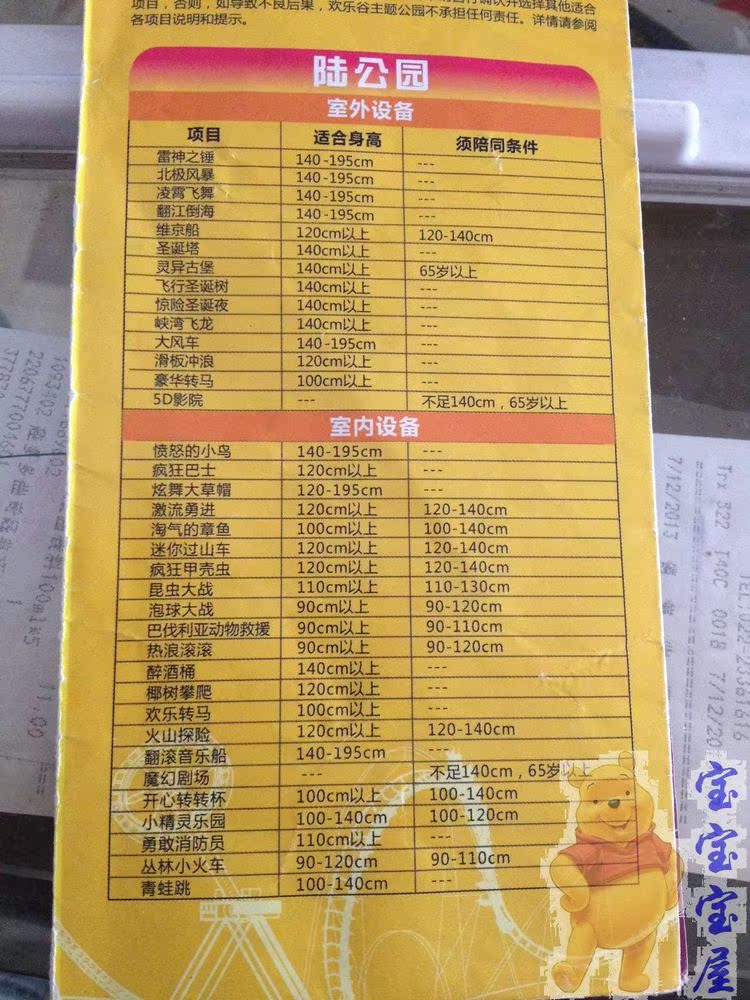 项目，否则，如导致不良后果，欢乐谷主题公园不承担任何责任。详情请参阅
各项目说明和提示。
陆公园
室外设备
项目 适合身高 须陪同条件
雷神之锤 140-195cm ---
北极风暴 140-195cm ---
凌霄飞舞 140-195cm ---
翻江倒海 140-195cm ---
维京船 120cm以上 120-140cm
圣诞塔 140cm以上 ---
灵异古堡 140cm以上 65岁以上
飞行圣诞树 140cm以上 ---
惊险圣诞夜 140cm以上 ---
峡湾飞龙 140cm以上 ---
大风车 140-195cm ---
滑板冲浪 120cm以上 ---
豪华转马 100cm以上 ---
5D影院 --- 不足140cm，65岁以上
室内设备
愤怒的小鸟 140-195cm ---
疯狂巴士 120cm以上 ---
炫舞大草帽 120-195cm ---
激流勇进 120cm以上 120-140cm
淘气的章鱼 100cm以上 100-140cm
迷你过山车 120cm以上 120-140cm
疯狂甲壳虫 120cm以上 120-140cm
昆虫大战 110cm以上 110-130cm
泡球大战 90cm以上 90-120cm
巴伐利亚动物救援 90cm以上 90-110cm
热浪滚滚 90cm以上 90-120cm
醉酒桶 140cm以上 ---
椰树攀爬 120cm以上 ---
欢乐转马 100cm以上 ---
火山探险 120cm以上 120-140cm
翻滚音乐船 140-195cm ---
魔幻剧场 --- 不足140cm，65岁以上
开心转转杯 100cm以上 100-140cm
小精灵乐园 100-140cm 100-120cm
勇敢消防员 110cm以上 ---
丛林小火车 90-120cm 90-110cm
青蛙跳 100-140cm ---
宝宝宝屋
1003402
11.00
Trx 322 I40C 0018 7/12/20
7/12/2013